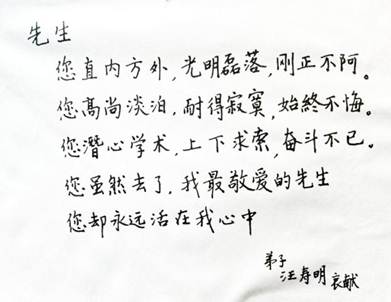 先生
您直内方外,光明磊落,刚正不阿。
您高尚淡泊,耐得寂寞,始终不悔。
您潜心学术,上下求索,奋斗不已。
您虽然去了,我最敬爱的先生
您却永远活在我心中
弟子
汪寿明 哀献